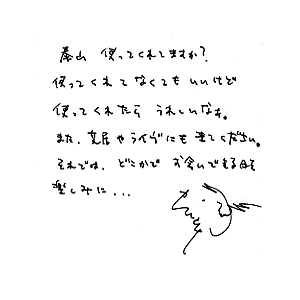 使ってくれてますか?
使ってくれてなくてもいいけど
使ってくれたら うれしいなぁ。
また、芝居やライヴにも来てください。
それでは、どこかで お会いできる日を
楽しみに...